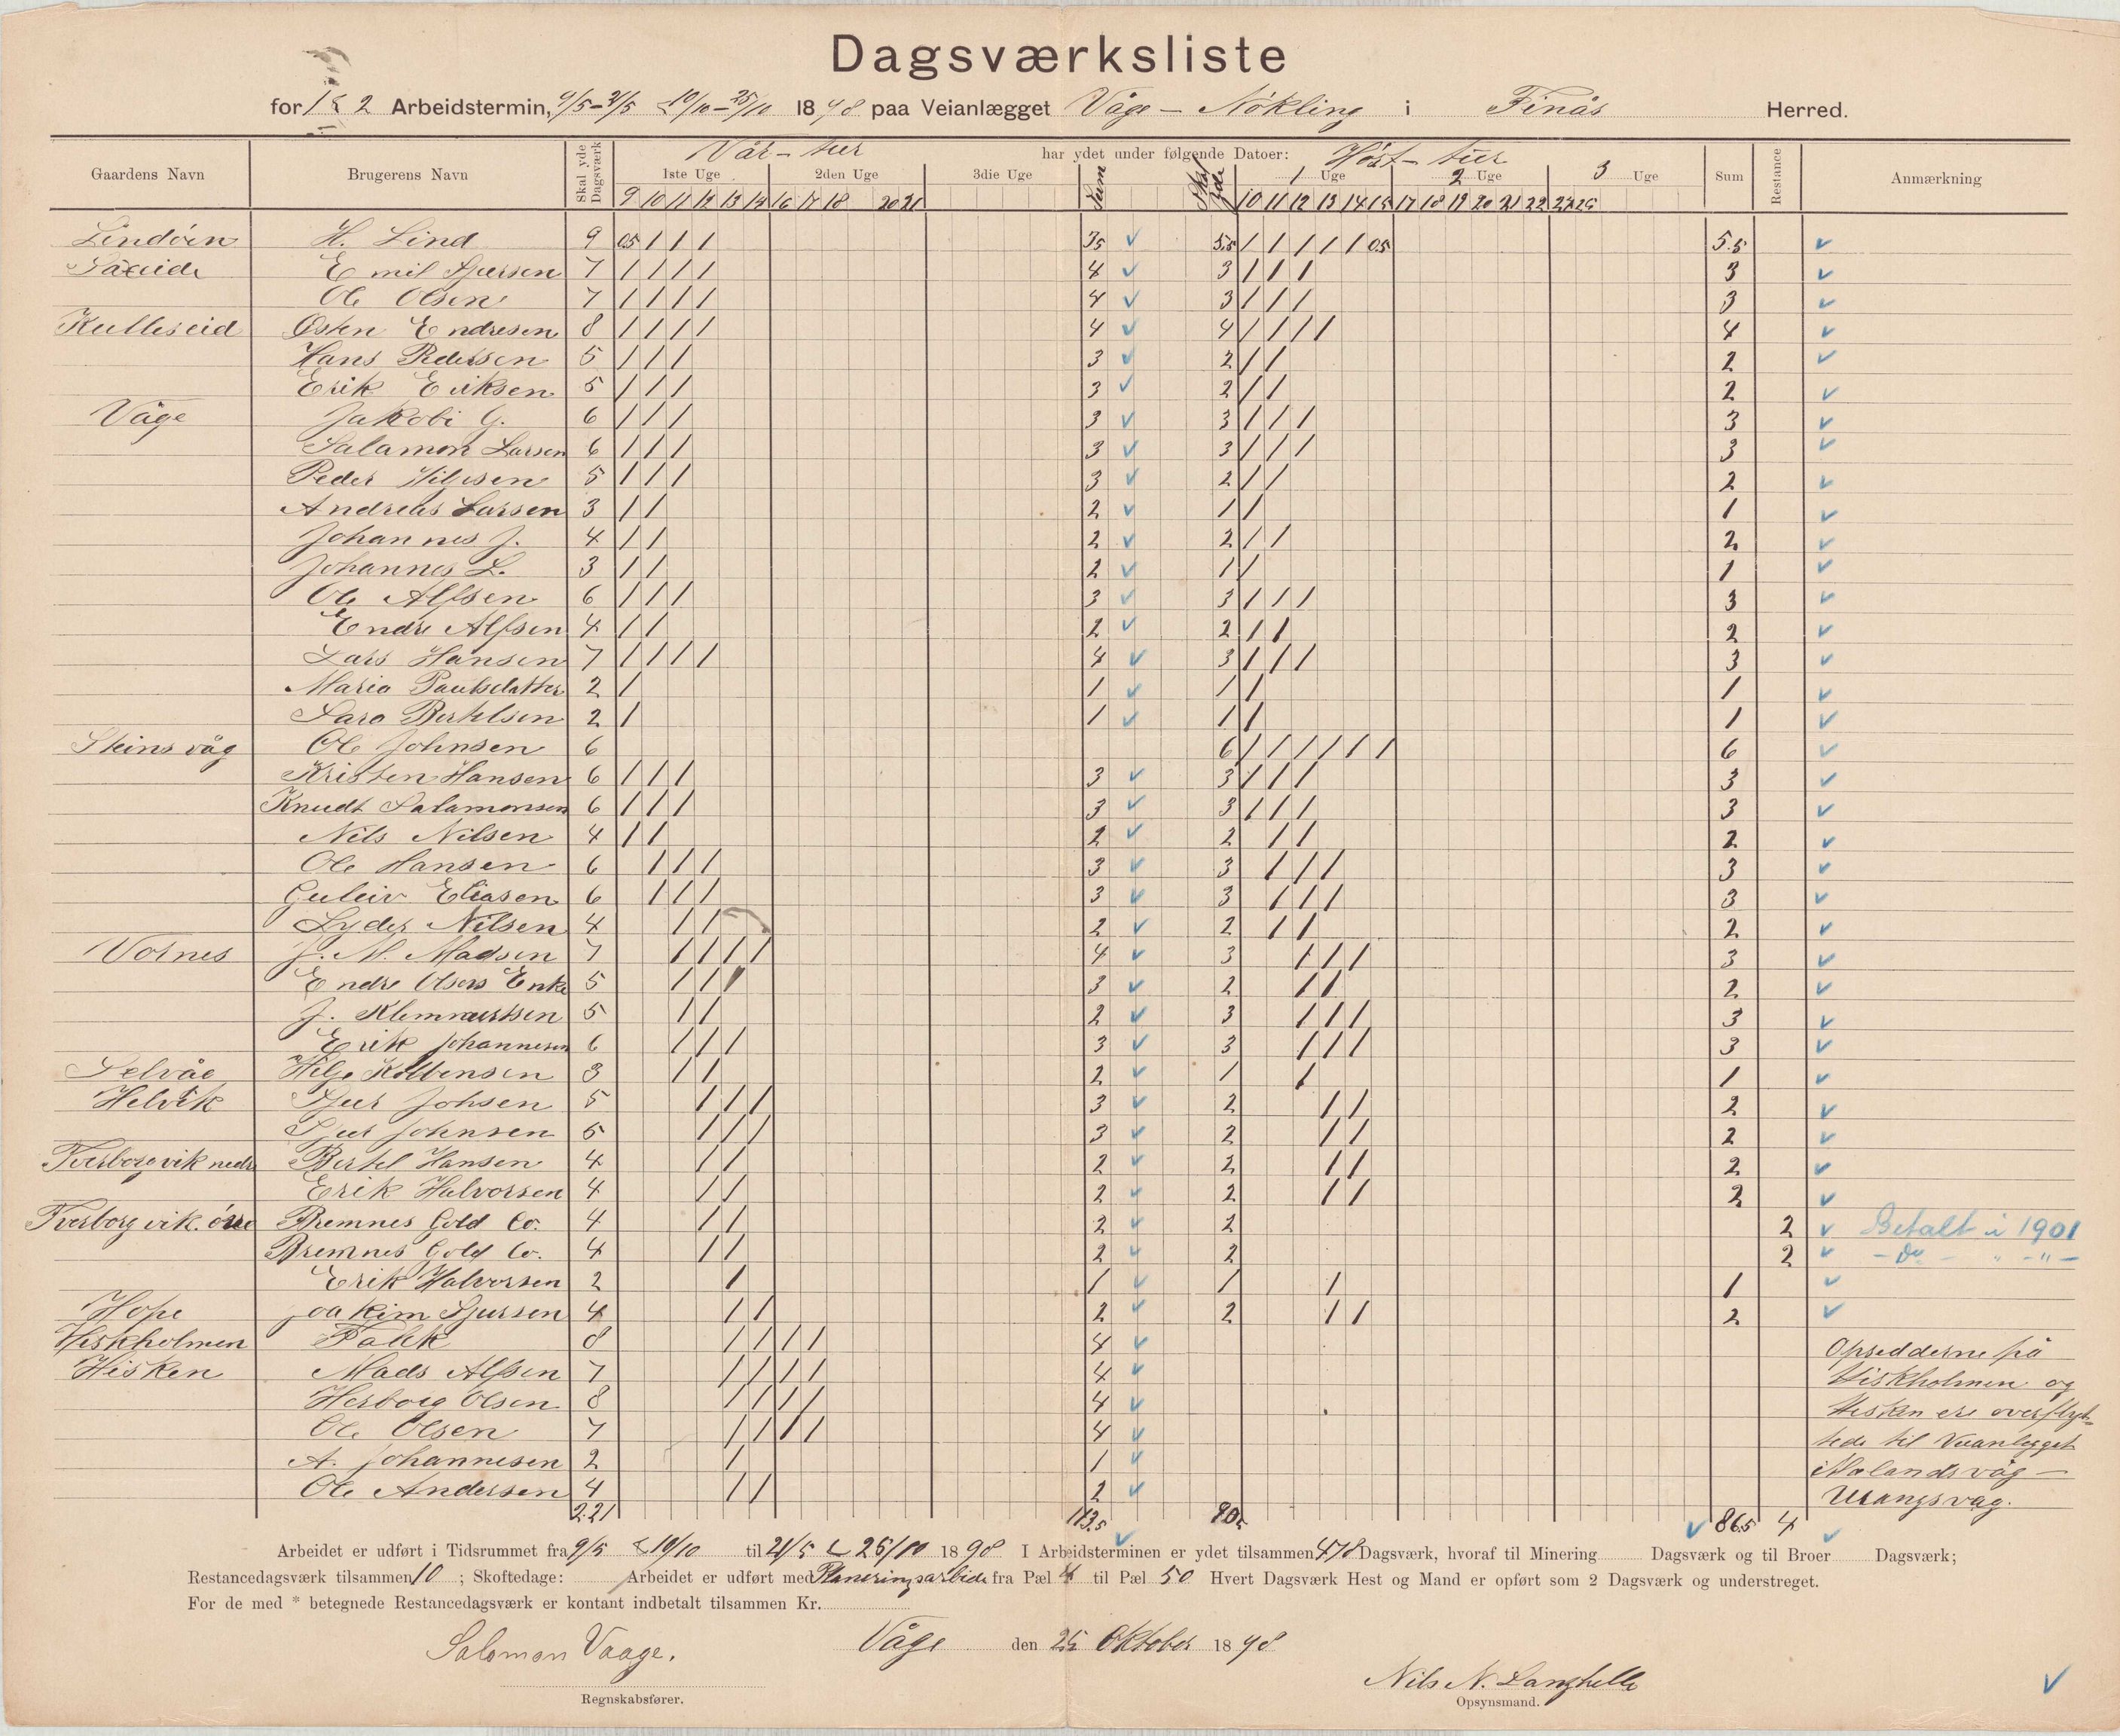 Dagsværksliste
for 1 & 2 Arbeidstermin, 9/5–21/5 & 10/10–25/10 1898 paa Veianlægget Våge – Nökling i Finås Herred.
Gaardens Navn Brugerens Navn Skal yde Dagsværk Vår – har ydet under følgende Datoer: Höst – Sum Restance Anmærkning
1ste Uge 2den Uge 3die Uge Sum Skal yde 1 Uge 2 Uge 3 Uge
9 10 11 12 13 14 16 17 18 20 21 10 11 12 13 14 15 17 18 19 20 21 22 24 25
H. Lind 9 05 / / / 35 ✓ 5,5 / / / / / 05 5.5 ✓
Emil Sjursen 7 / / / / 4 ✓ 3 / / / 3 ✓
Ole Olsen 7 / / / / 4 ✓ 3 / / / 3 ✓
Kulleseid Østen Endresen 8 / / / / 4 ✓ 4 / / / / 4 ✓
Hans Pedersen 5 / / / 3 ✓ 2 / / 2 ✓
Erik Eriksen 5 / / / 3 ✓ 2 / / 2 ✓
Våge Jakobi G. 6 / / / 3 ✓ 3 / / / 3 ✓
Salamon Larsen 6 / / / 3 ✓ 3 / / / 3 ✓
Peder Hilgesen 5 / / / 3 ✓ 2 / / 2 ✓
Andreas Larsen 3 / / 2 ✓ 1 / 1 ✓
Johannes J. 4 / / 2 ✓ 2 / / 2 ✓
Johannes L. 3 / / 2 ✓ 1 / 1 ✓
Ole Alfsen 6 / / / 3 ✓ 3 / / / 3 ✓
Endre Alfsen 4 / / 2 ✓ 2 / / 2 ✓
Lars Hansen 7 / / / / 4 ✓ 3 / / / 3 ✓
Maria Paulsdatter 2 / 1 ✓ 1 / 1 ✓
Lars Bertelsen 2 / 1 ✓ 1 / 1 ✓
Steinsvåg Ole Johnsen 6 6 / / / / / / 6 ✓
Kristen Hansen 6 / / / 3 ✓ 3 / / / 3 ✓
Knudt Salamonsen 6 / / / 3 ✓ 3 / / / 3 ✓
Nils Nilsen 4 / / 2 ✓ 2 / / 2 ✓
Ole Hansen 6 / / / 3 ✓ 3 / / / 3 ✓
Guleiv Eliasen 6 / / / 3 ✓ 3 / / / 3 ✓
Lyder Nilsen 4 / / 2 ✓ 2 / / 2 ✓
Vornes J. M. Madsen 7 / / / / 4 ✓ 3 / / / 3 ✓
Endre Olsens Enke 5 / / / 3 ✓ 2 / / 2 ✓
J. Klemmetsen 5 / / 2 ✓ 3 / / / 3 ✓
Erik Johannesen 6 / / / 3 ✓ 3 / / / 3 ✓
Selvåe Hilge Kolbensen 3 / / 2 ✓ 1 / 1 ✓
Helvik Sjur Johsen 5 / / / 3 ✓ 2 / / 2 ✓
Sjur Johnsen 5 / / / 3 ✓ 2 / / 2 ✓
Tverborgvik nedre Bertel Hansen 4 / / 2 ✓ 2 / / 2 ✓
Erik Halvorsen 4 / / 2 ✓ 2 / / 2 ✓
Tverborgvik. övre Bremnes Gold Co. 4 / / 2 ✓ 2 2 ✓ Betalt i 1901
Bremnes Gold Co. 4 / / 2 ✓ 2 2 ✓ – do – " – " –
Erik Halvorsen 2 / 1 ✓ 1 / 1 ✓
Hope Joakim Sjursen 4 / / 2 ✓ 2 / / 2 ✓
Hiskholmen Falck 8 / / / / 4 ✓ Opsedderne på
Hisken Mads Alfsen 7 / / / / 4 ✓ Hiskholmen og
Herborg Olsen 8 / / / / 4 ✓ Hisken ere overflyt-
Ole Olsen 7 / / / / 4 ✓ tede til Veianlegget
A. Johannesen 2 / 1 ✓ Mælandsvåg –
Ole Andersen 4 / / 2 ✓ Urangsvag.
221 113,5 ✓ 90, ✓ 86.5 4 ✓
Arbeidet er udført i Tidsrummet fra 9/5 & 10/10 til 21/5 & 25/10 1898 I Arbeidsterminen er ydet tilsammen 478 Dagsværk, hvoraf til Minering Dagsværk og til Broer Dagsværk;
Restancedagsværk tilsammen 10 ; Skoftedage: Arbeidet er udført med Planeringsarbide fra Pæl 4 til Pæl 50 Hvert Dagsværk Hest og Mand er opført som 2 Dagsværk og understreget.
For de med * betegnede Restancedagsværk er kontant indbetalt tilsammen Kr.
Salomon Vaage. Våge den 25 Oktober 1898
Nils N. Langhelle ✓
Regnskabsfører. Opsynsmand.